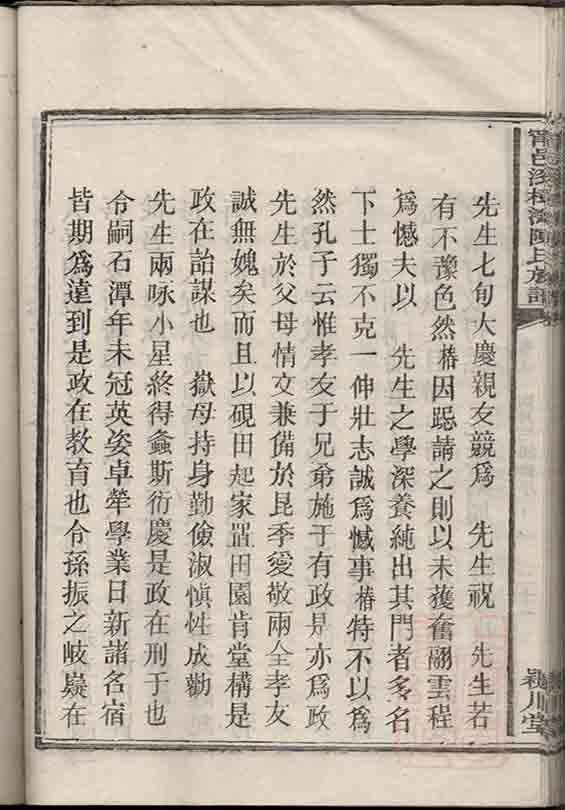 甯邑深柳灣陳氏族譜
先生七旬大慶親友競爲 先生祝 先生若
有不豫色然椿因跽請之則以未獲奮翮雲程
爲憾夫以 先生之學深養純出其門者多名
下士獨不克一伸壯志誠爲憾事椿特不以爲
然孔子云惟孝友于兄弟施于有政是亦爲政
先生於父母情文兼備於昆季愛敬兩全孝友
誠無媿矣而且以硯田起家置田園肯堂構是
政在詒謀也 嶽母持身勤儉淑愼性成勸
先生兩咏小星終得螽斯衍慶是政在刑于也
令嗣石潭年未冠英姿卓犖學業日新諸名宿
皆期爲遠到是政在教育也令孫振之岐嶷在
潁川堂